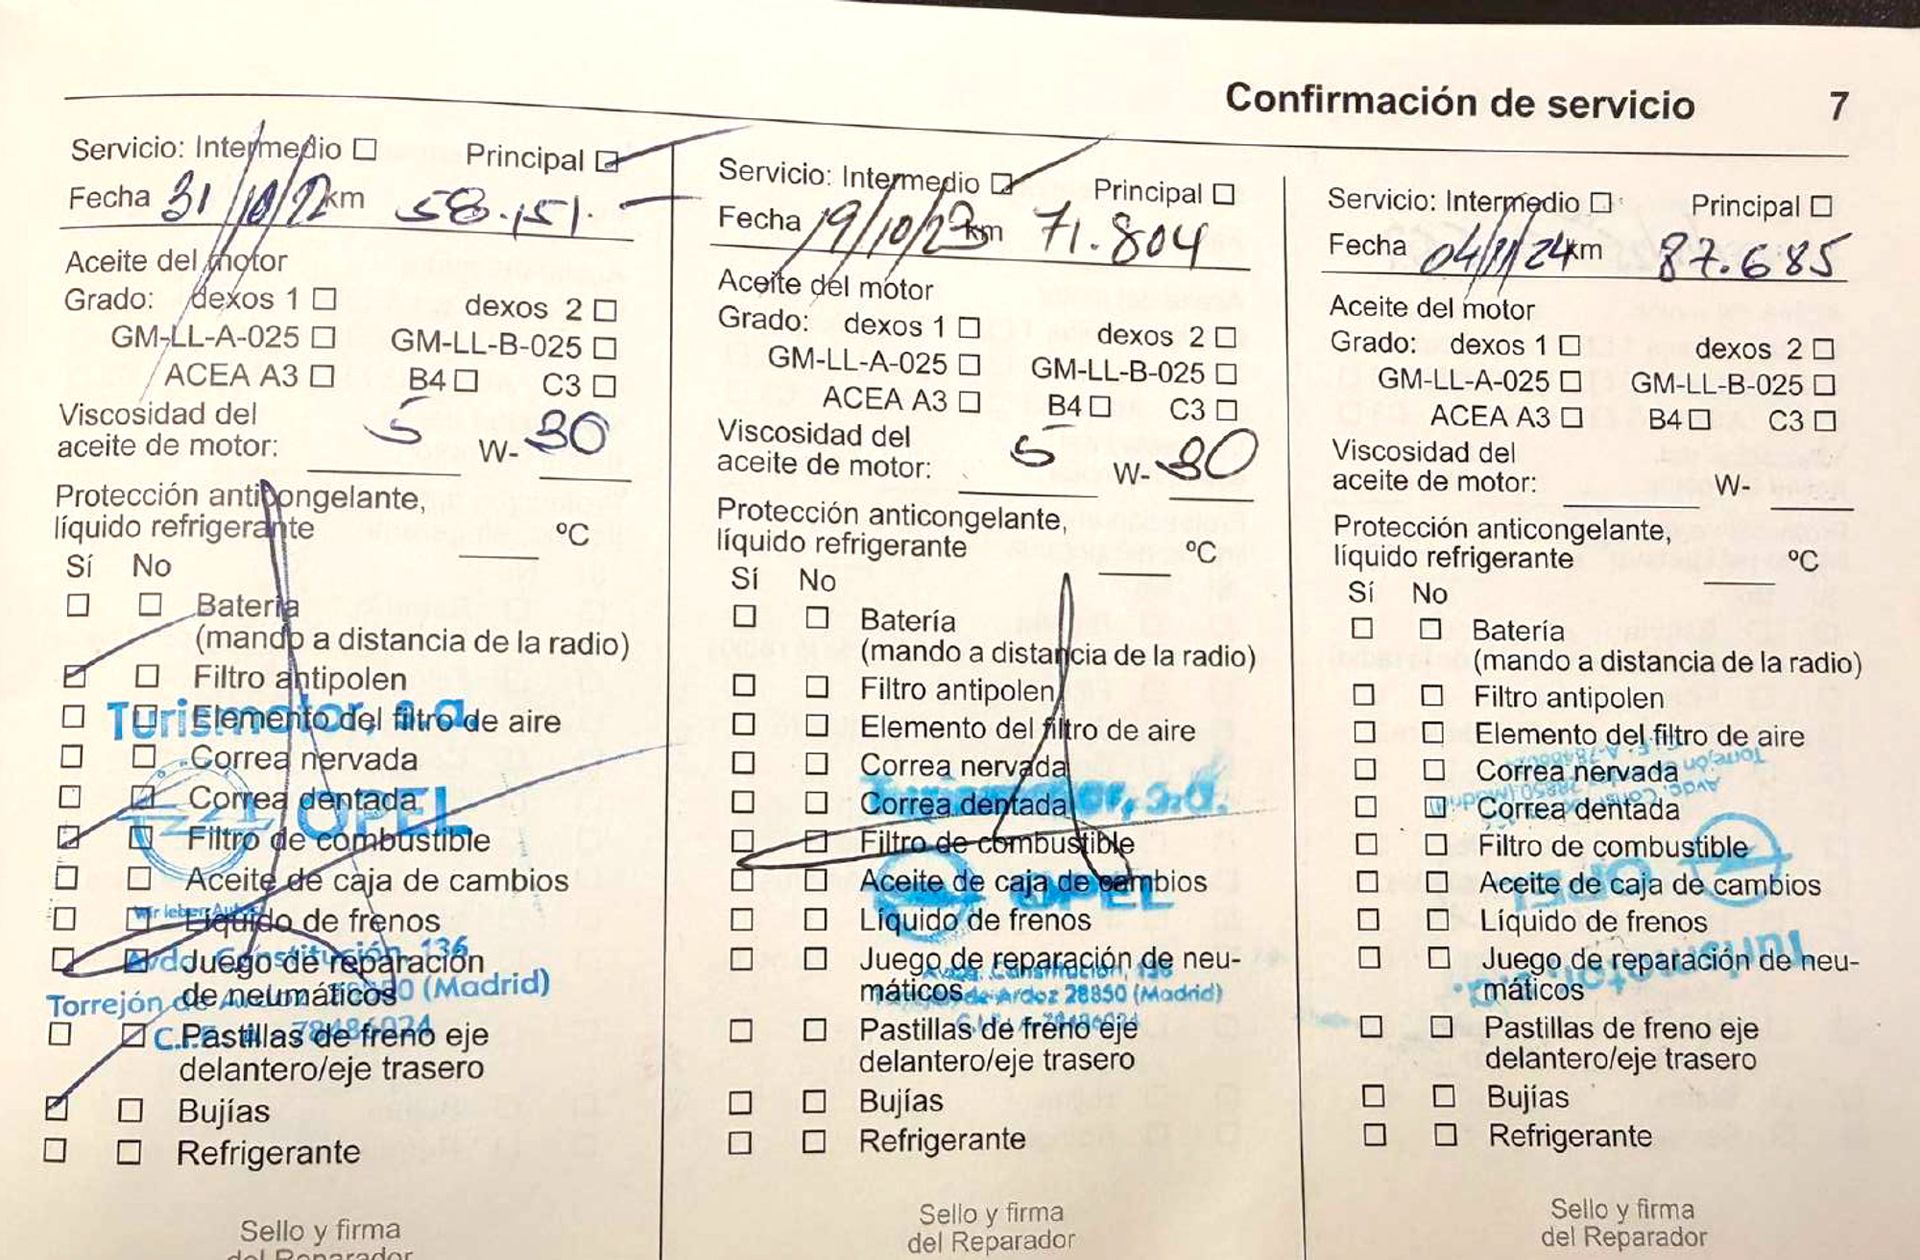 Confirmación de servicio 7
Servicio: Intermedio ☐ Principal ☑
Fecha 31/10/22 km 58.151.
Aceite del motor
Grado: dexos 1 ☐ dexos 2 ☐
GM-LL-A-025 ☐ GM-LL-B-025 ☐
ACEA A3 ☐ B4 ☐ C3 ☐
Viscosidad del
aceite de motor: 5 W- 30
Protección anticongelante,
líquido refrigerante ºC
Sí No
☐ ☐ Batería
(mando a distancia de la radio)
☑ ☐ Filtro antipolen
Turismotor, s.a.
☐ ☐ Elemento del filtro de aire
☐ ☐ Correa nervada
☐ ☐ Correa dentada
OPEL
☑ ☐ Filtro de combustible
☐ ☐ Aceite de caja de cambios
Wir leben Autos
☐ ☐ Líquido de frenos
Avda. Constitución, 136
☐ ☐ Juego de reparación
de neumáticos
Torrejón de Ardoz 28850 (Madrid)
☐ ☐ Pastillas de freno eje
delantero/eje trasero
☑ ☐ Bujías
☐ ☐ Refrigerante
Sello y firma
del Reparador
Servicio: Intermedio ☑ Principal ☐
Fecha 19/10/23 km 71.804
Aceite del motor
Grado: dexos 1 ☐ dexos 2 ☐
GM-LL-A-025 ☐ GM-LL-B-025 ☐
ACEA A3 ☐ B4 ☐ C3 ☐
Viscosidad del
aceite de motor: 5 W- 30
Protección anticongelante,
líquido refrigerante ºC
Sí No
☐ ☐ Batería
(mando a distancia de la radio)
☐ ☐ Filtro antipolen
☐ ☐ Elemento del filtro de aire
☐ ☐ Correa nervada
Turismotor, s.a.
☐ ☐ Correa dentada
☐ ☐ Filtro de combustible
☐ ☐ Aceite de caja de cambios
OPEL
☐ ☐ Líquido de frenos
☐ ☐ Juego de reparación de neu-
máticos
Avda. Constitución, 136
Torrejón de Ardoz 28850 (Madrid)
☐ ☐ Pastillas de freno eje
delantero/eje trasero
☐ ☐ Bujías
☐ ☐ Refrigerante
Sello y firma
del Reparador
Servicio: Intermedio ☐ Principal ☐
Fecha 04/11/24 km 87.685
Aceite del motor
Grado: dexos 1 ☐ dexos 2 ☐
GM-LL-A-025 ☐ GM-LL-B-025 ☐
ACEA A3 ☐ B4 ☐ C3 ☐
Viscosidad del
aceite de motor: W-
Protección anticongelante,
líquido refrigerante ºC
Sí No
☐ ☐ Batería
(mando a distancia de la radio)
☐ ☐ Filtro antipolen
☐ ☐ Elemento del filtro de aire
☐ ☐ Correa nervada
☐ ☐ Correa dentada
☐ ☐ Filtro de combustible
☐ ☐ Aceite de caja de cambios
OPEL
☐ ☐ Líquido de frenos
☐ ☐ Juego de reparación de neu-
máticos
Turismotor, s.a.
☐ ☐ Pastillas de freno eje
delantero/eje trasero
☐ ☐ Bujías
☐ ☐ Refrigerante
Sello y firma
del Reparador